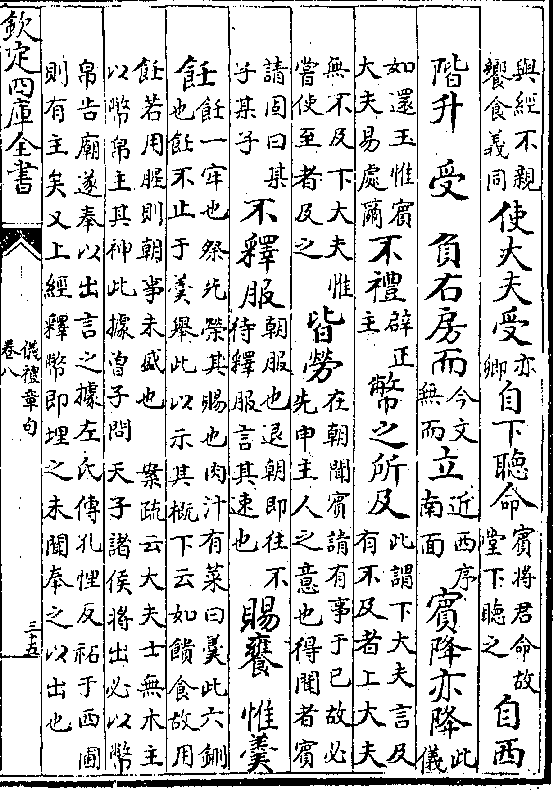 與經不親
饗食義同
使大夫受
亦
卿
自下聽命
賓將君命故
堂下聽之
自西
階升受負右房而
今文
無而
立
近西序
南面
賓降亦降
此
儀
如還玉惟賓
大夫易處爾
不禮
辟正
主
幣之所及
此謂下大夫言及
有不及者上大夫
無不及下大夫惟
嘗使至者及之
皆勞
在朝聞賓請有事于已故必
先申主人之意也得聞者賓
請固曰某
子某子
不釋服
朝服也退朝即往不
待釋服言其速也
賜饔惟羹
飪
飪一牢也祭先榮其賜也肉汁有菜曰羹此六鉶
也飪不止于羹舉此以示其概下云如饋食故用
飪若用腥則朝事未盛也 案疏云大夫士無木主
以幣帛主其神此據曾子問天子諸侯將出必以幣
帛告廟遂奉以出言之據左氏傳孔悝反祏于西圃
則有主矣又上經釋幣即埋之未聞奉之以出也
欽定四庫全書
儀禮章句
卷八
三十五